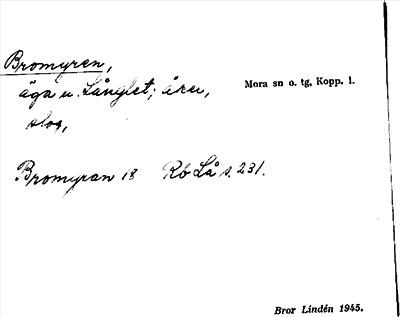 Bromyren,
äga u. Långlet; åker,
Mora sn o. tg, Kopp. l.
slog,
Bromyran 18 Rb Lå s. 231.
Bror Lindén 1945.